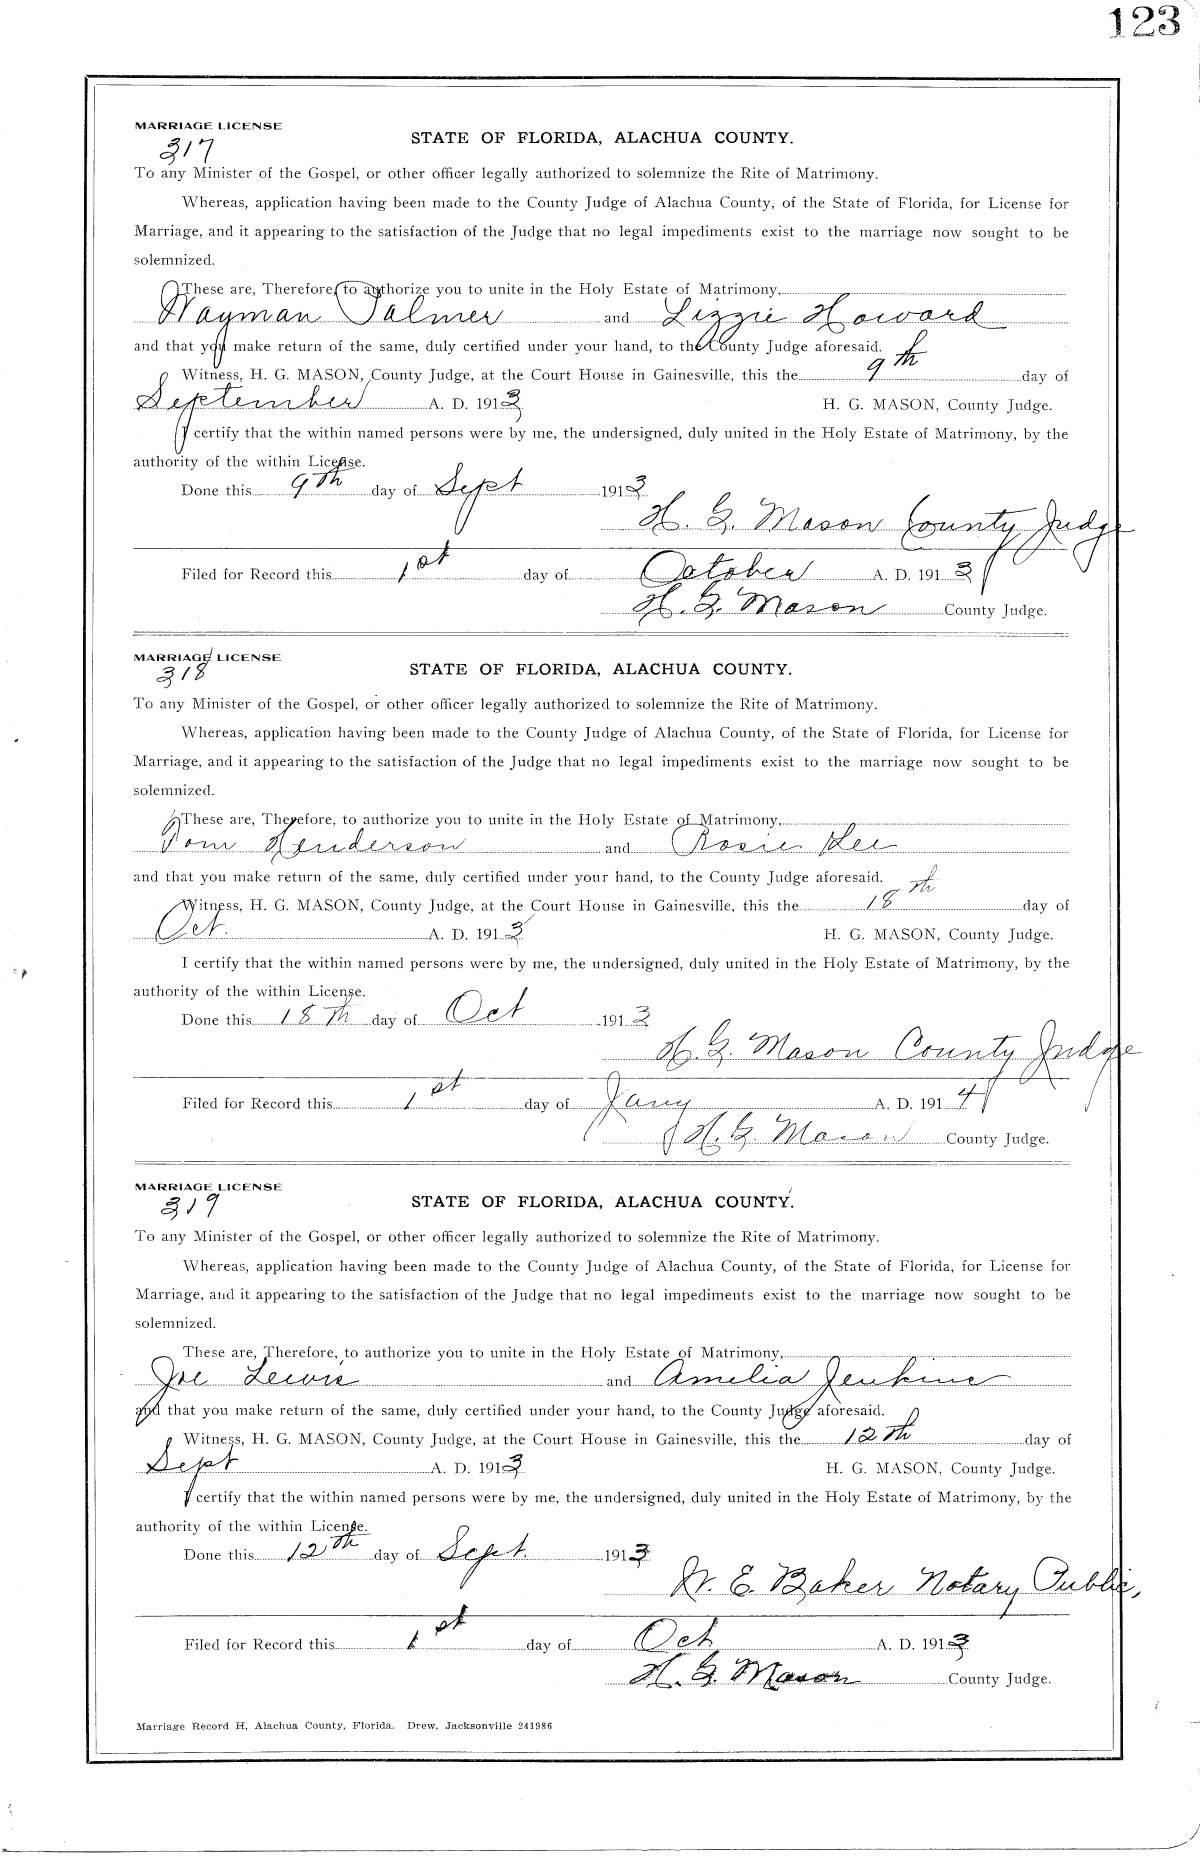 123
MARRIAGE LICENSE
317
STATE OF FLORIDA, ALACHUA COUNTY.
To any Minister of the Gospel, or other officer legally authorized to solemnize the Rite of Matrimony.
Whereas, application having been made to the County Judge of Alachua County, of the State of Florida, for License for
Marriage, and it appearing to the satisfaction of the Judge that no legal impediments exist to the marriage now sought to be
solemnized.
These are, Therefore, to authorize you to unite in the Holy Estate of Matrimony,
Wayman Palmer and Lizzie Howard
and that you make return of the same, duly certified under your hand, to the County Judge aforesaid.
Witness, H. G. MASON, County Judge, at the Court House in Gainesville, this the 9th day of
September A. D. 1913 H. G. MASON, County Judge.
I certify that the within named persons were by me, the undersigned, duly united in the Holy Estate of Matrimony, by the
authority of the within License.
Done this 9th day of Sept 1913
H. G. Mason County Judge
Filed for Record this 1st day of October A. D. 1913
H. G. Mason County Judge.
MARRIAGE LICENSE
318
STATE OF FLORIDA, ALACHUA COUNTY.
To any Minister of the Gospel, or other officer legally authorized to solemnize the Rite of Matrimony.
Whereas, application having been made to the County Judge of Alachua County, of the State of Florida, for License for
Marriage, and it appearing to the satisfaction of the Judge that no legal impediments exist to the marriage now sought to be
solemnized.
These are, Therefore, to authorize you to unite in the Holy Estate of Matrimony,
Tom Henderson and Rosie Lee
and that you make return of the same, duly certified under your hand, to the County Judge aforesaid.
Witness, H. G. MASON, County Judge, at the Court House in Gainesville, this the 18th day of
Oct. A. D. 1913 H. G. MASON, County Judge.
I certify that the within named persons were by me, the undersigned, duly united in the Holy Estate of Matrimony, by the
authority of the within License.
Done this 18th day of Oct 1913
H. G. Mason County Judge
Filed for Record this 1st day of Jany A. D. 1914
H. G. Mason County Judge.
MARRIAGE LICENSE
319
STATE OF FLORIDA, ALACHUA COUNTY.
To any Minister of the Gospel, or other officer legally authorized to solemnize the Rite of Matrimony.
Whereas, application having been made to the County Judge of Alachua County, of the State of Florida, for License for
Marriage, and it appearing to the satisfaction of the Judge that no legal impediments exist to the marriage now sought to be
solemnized.
These are, Therefore, to authorize you to unite in the Holy Estate of Matrimony,
Joe Lewis and Amelia Jenkins
and that you make return of the same, duly certified under your hand, to the County Judge aforesaid.
Witness, H. G. MASON, County Judge, at the Court House in Gainesville, this the 12th day of
Sept A. D. 1913 H. G. MASON, County Judge.
I certify that the within named persons were by me, the undersigned, duly united in the Holy Estate of Matrimony, by the
authority of the within License.
Done this 12th day of Sept. 1913
W. E. Baker Notary Public,
Filed for Record this 1st day of Oct A. D. 1913
H. G. Mason County Judge.
Marriage Record H, Alachua County, Florida. Drew, Jacksonville 241986